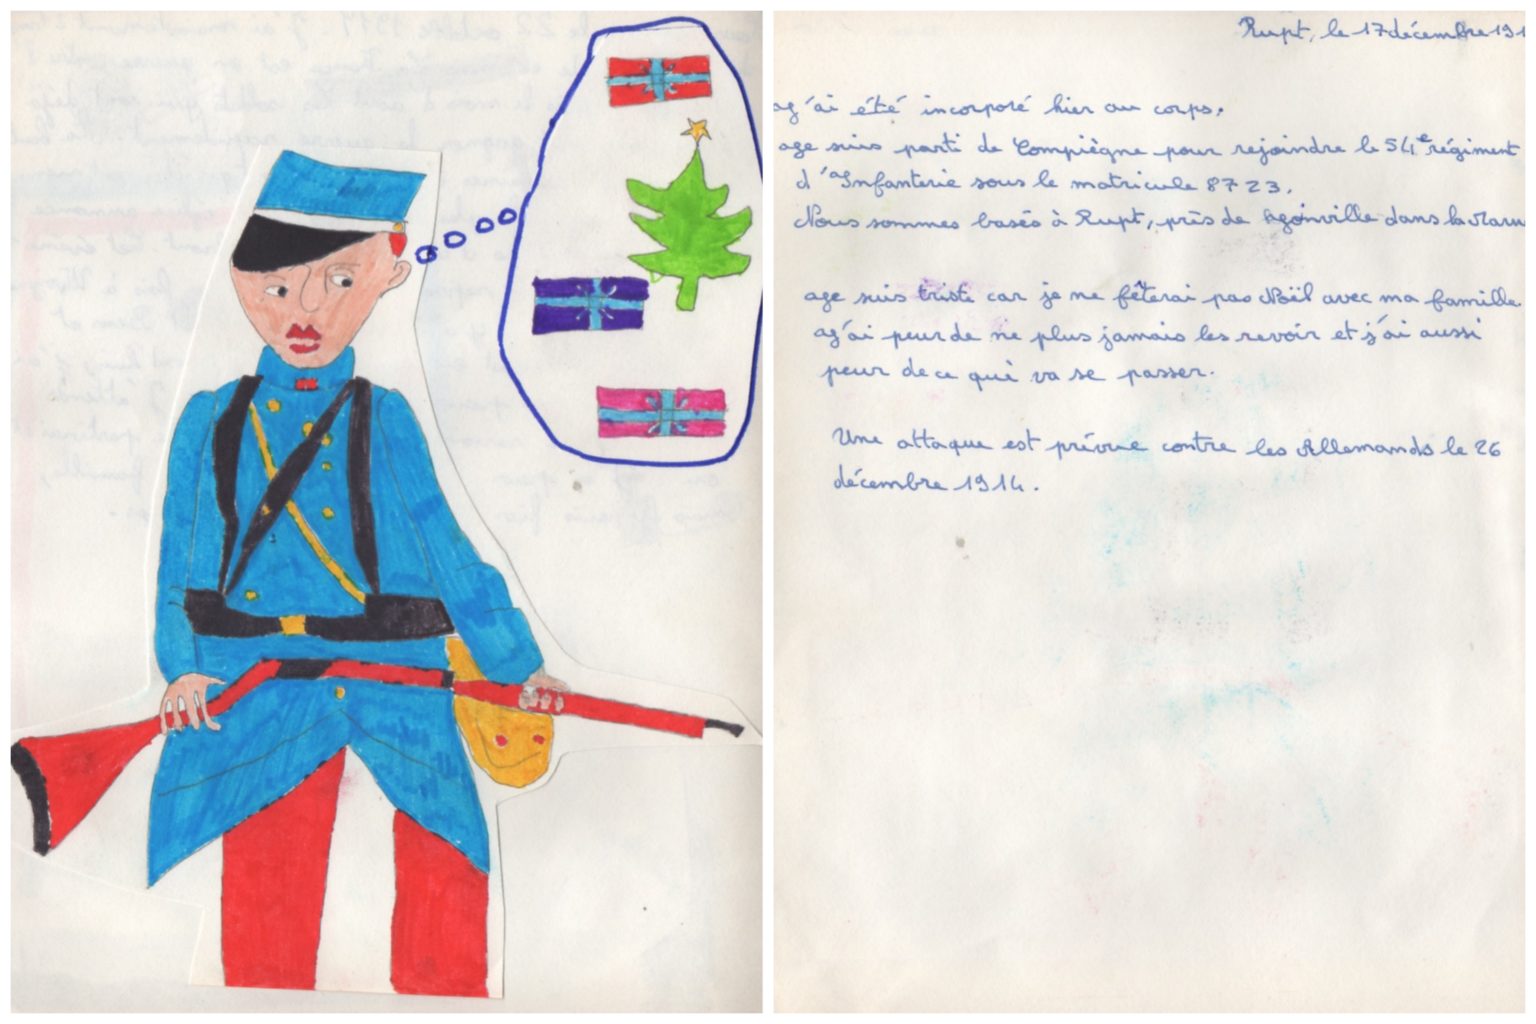 Rupt, le 17 décembre 191
J'ai été incorporé hier au corps.
Je suis parti de Compiègne pour rejoindre le 54e régiment
d'Infanterie sous le matricule 8723.
Nous sommes basés à Rupt, près de Joinville dans la Marn
Je suis triste car je ne fêterai pas Noël avec ma famille.
J'ai peur de ne plus jamais les revoir et j'ai aussi
peur de ce qui va se passer.
Une attaque est prévue contre les Allemands le 26
décembre 1914.